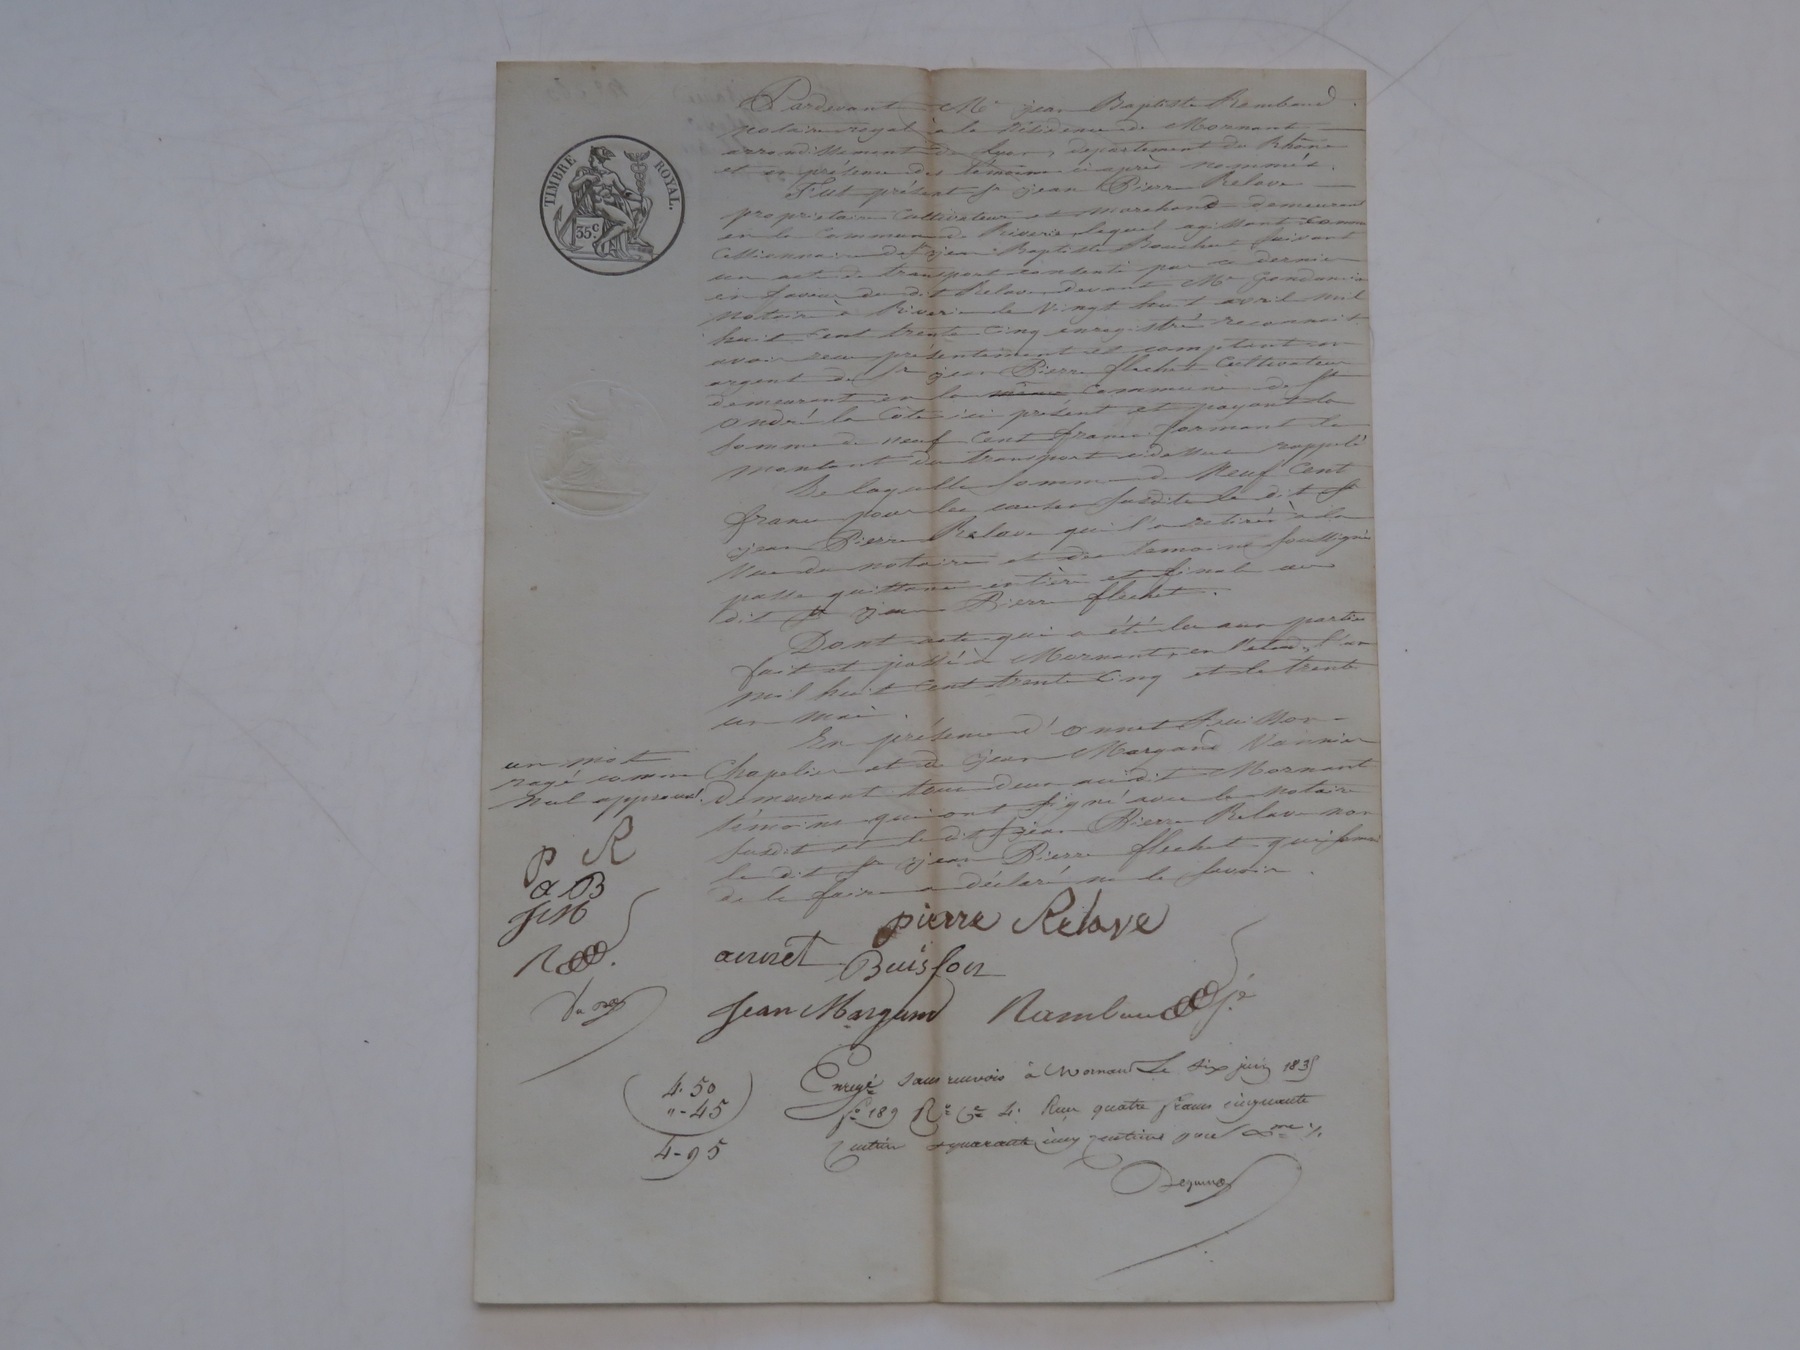 TIMBRE ROYAL.
35c.
Pardevant Me jean Baptiste Rambaud
notaire royal à la résidence de Mornant
arrondissement de Lyon, département du Rhône
et en présence des témoins ci après nommés.
Fut présent Sr jean Pierre Relave
propriétaire cultivateur et marchand demeurant
en la commune de Riverie lequel agissant comme
cessionnaire de Sr jean Baptiste Bouchut suivant
un acte de transport consenti par ce dernier
en faveur du dit Relave devant Me
notaire à Riverie le vingt huit avril mil
huit cent trente cinq enregistré reconnait
avoir reçu présentement et comptant en
argent de Sr jean Pierre flechet cultivateur
demeurant en la même commune de St
andré la Côte ici présent et payant la
somme de neuf cent francs formant le
montant du transport cidessus rappelé
De laquelle somme de neuf cent
francs pour les causes susdites le dit Sr
jean Pierre Relave qui l'a retirée à la
vue du notaire et des témoins soussignés
passe quittance entière et finale au
dit Sr jean Pierre flechet.
Dont acte qui a été lu aux parties
fait et passé à Mornant, en l'étude, l'an
mil huit cent trente cinq et le trente
un mai.
En présence d'annet Buisson
Chapelier et de jean Margand Vannier
demeurant tous deux audit Mornant
témoins qui ont signé avec le notaire
susdit et le dit Sr jean Pierre Relave non
le dit Sr jean Pierre flechet qui sommé
de le faire a déclaré ne le savoir.
un mot
rayé comme
nul approuvé.
p R
a B
J M
R
pierre Relave
annet Buisson
Jean Margand Rambaud
4. 50
"- 45
4 - 95
Enregé sans renvois à Mornant Le six juin 1835
fo 189 Ro Ce 4. Reçu quatre francs cinquante
centimes quarante cinq centimes pour